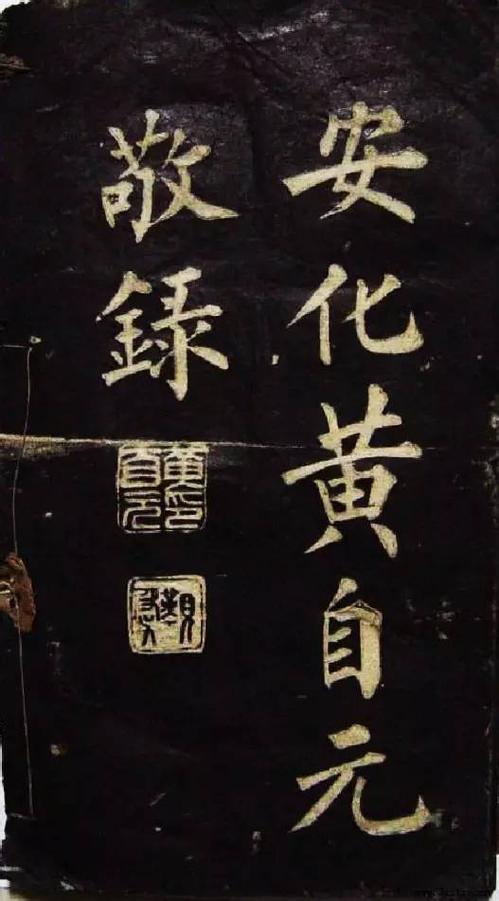 安化黃自元
敬錄
黃自元印